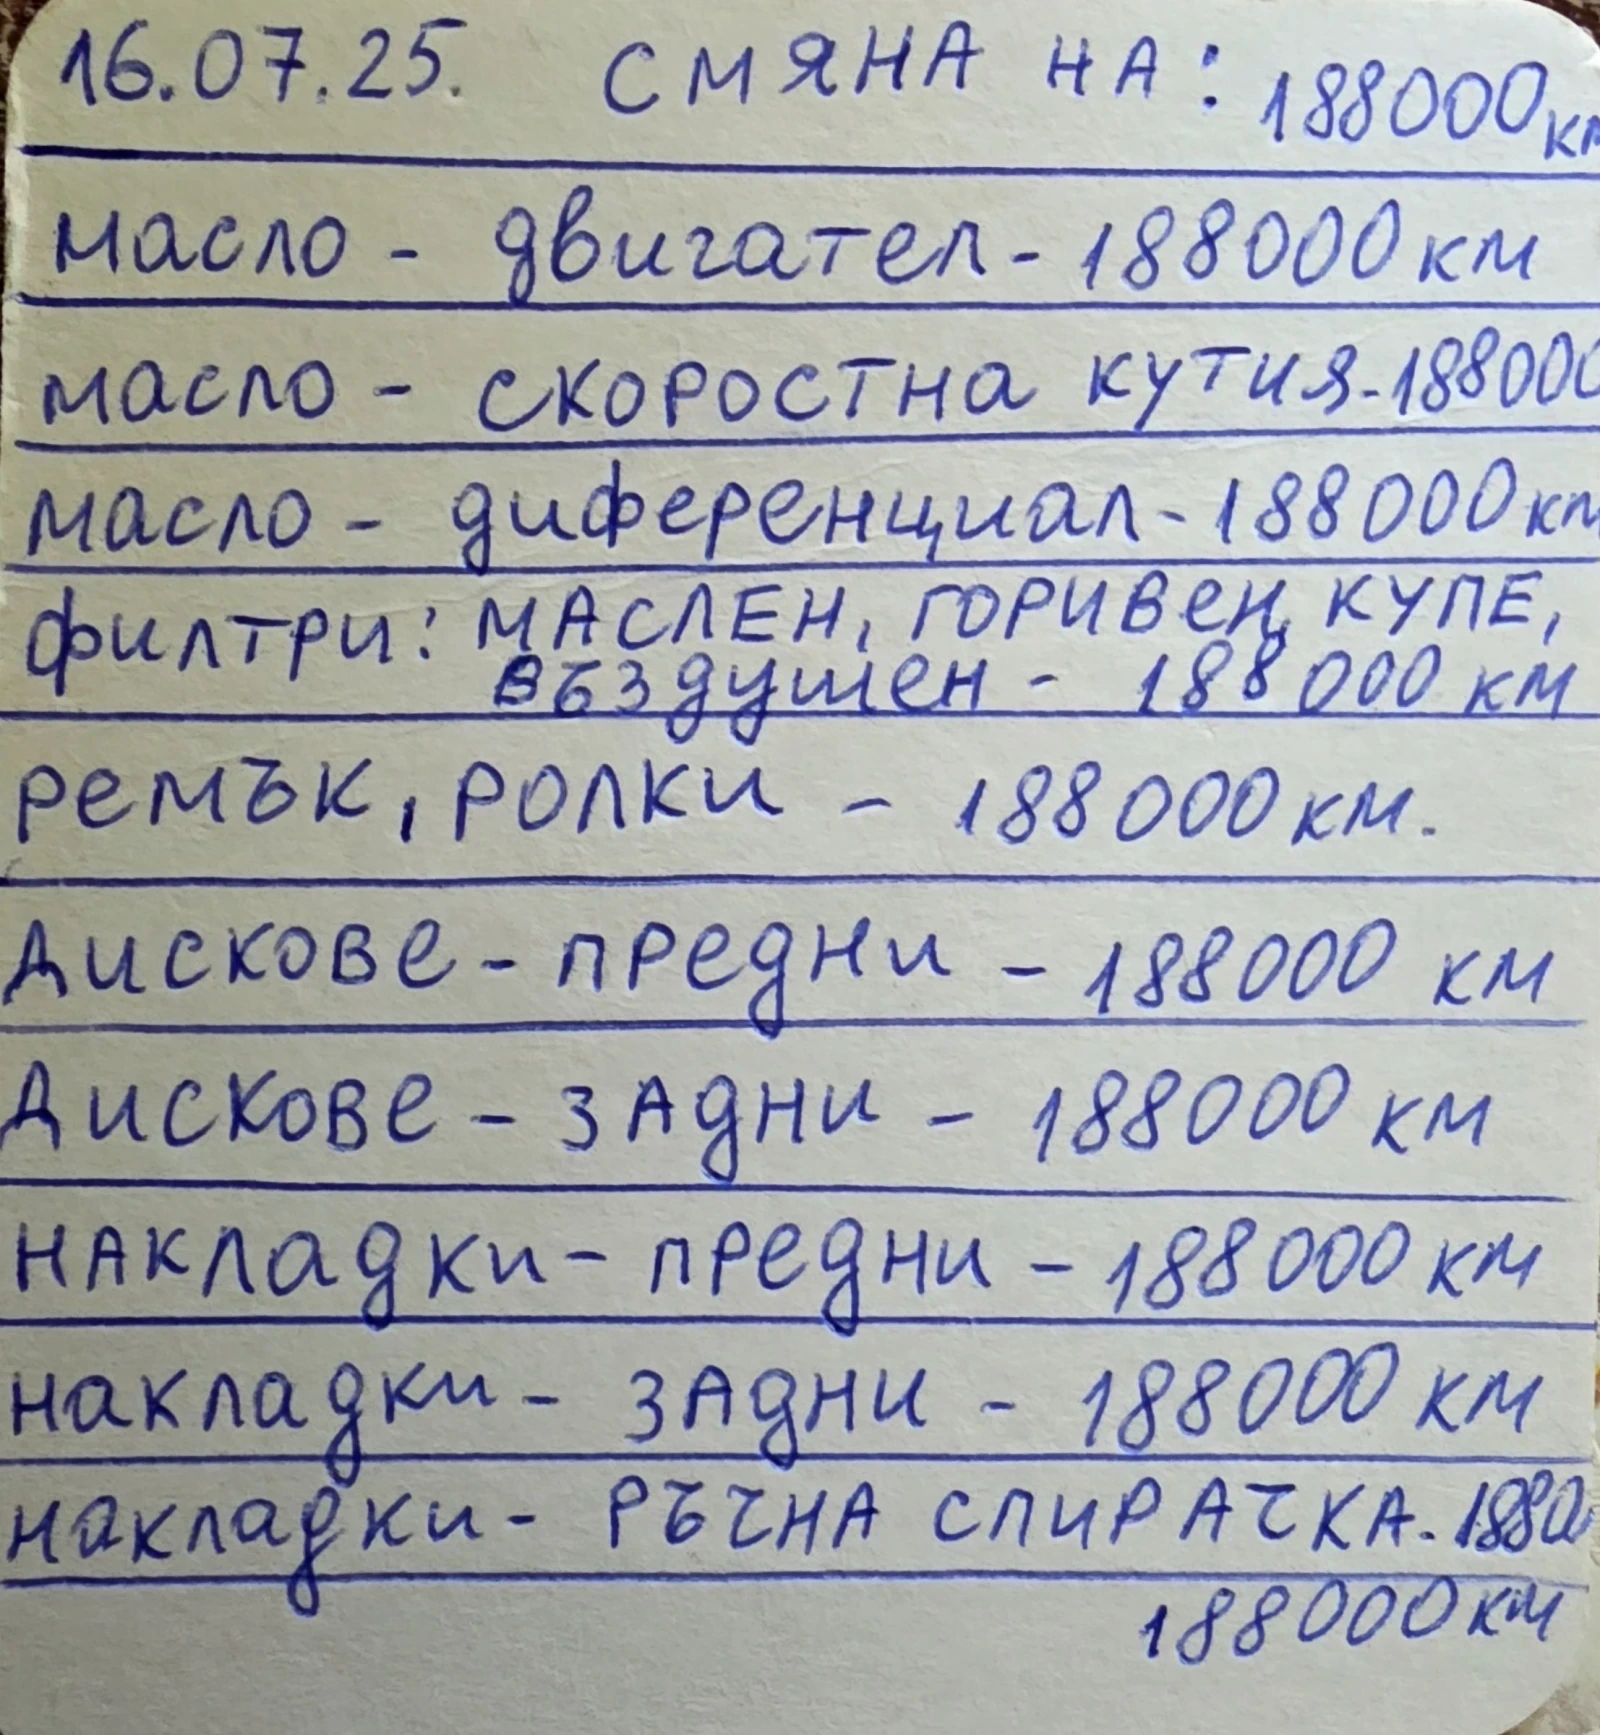 16.07.25. СМЯНА НА: 188000 км
масло - двигател - 188000 км
масло - скоростна кутия - 188000
масло - диференциал - 188000 км
филтри: МАСЛЕН, ГОРИВеН, КУПЕ,
въздушен - 188000 км
ремък, ролки - 188000 км.
Дискове - предни - 188000 км
Дискове - зАдни - 188000 км
накладки - предни - 188000 км
накладки - зАдни - 188000 км
накладки - РЪЧНА СПИРАЧКА. 1880
188000 км